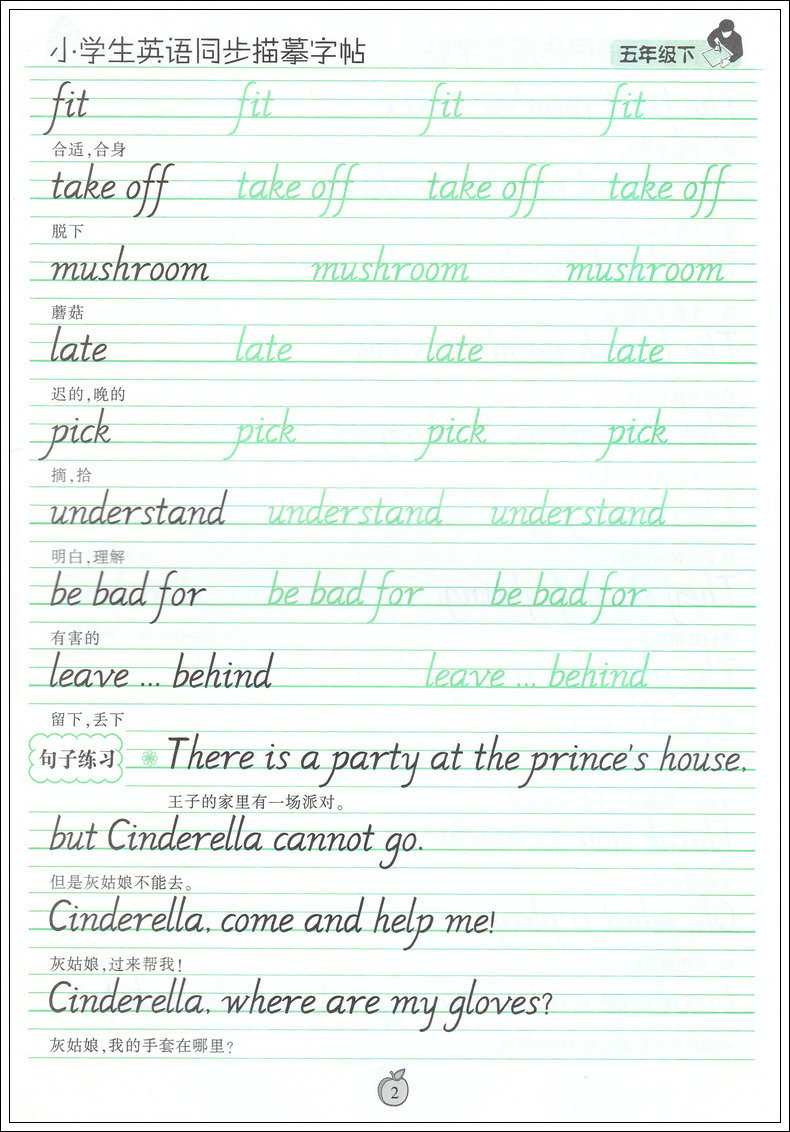 小学生英语同步描摹字帖 五年级下
fit fit fit fit
合适,合身
take off take off take off take off
脱下
mushroom mushroom mushroom
蘑菇
late late late late
迟的,晚的
pick pick pick pick
摘,拾
understand understand understand
明白,理解
be bad for be bad for be bad for
有害的
leave ... behind leave ... behind
留下,丢下
句子练习 There is a party at the prince's house,
王子的家里有一场派对。
but Cinderella cannot go.
但是灰姑娘不能去。
Cinderella, come and help me!
灰姑娘,过来帮我!
Cinderella, where are my gloves?
灰姑娘,我的手套在哪里?
2